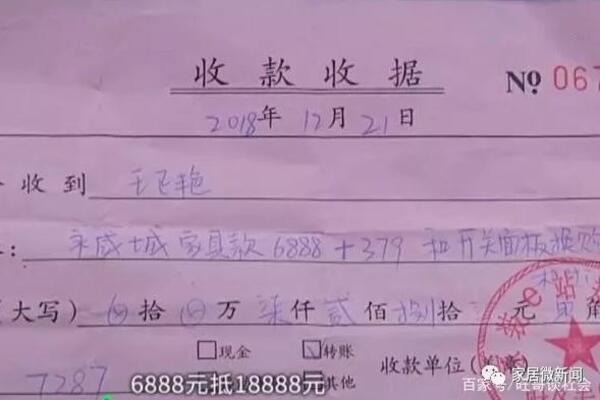 收款收据 № 067
2018年12月21日
收到 王飞艳
家具款 6888+379 和开关面板
(大写) ⊗拾⊗万柒仟贰佰捌拾 元 角
□现金 ☑转账 收款单位
7287 其他
6888元抵18888元
家居微新闻
百家号/旺哥谈社会